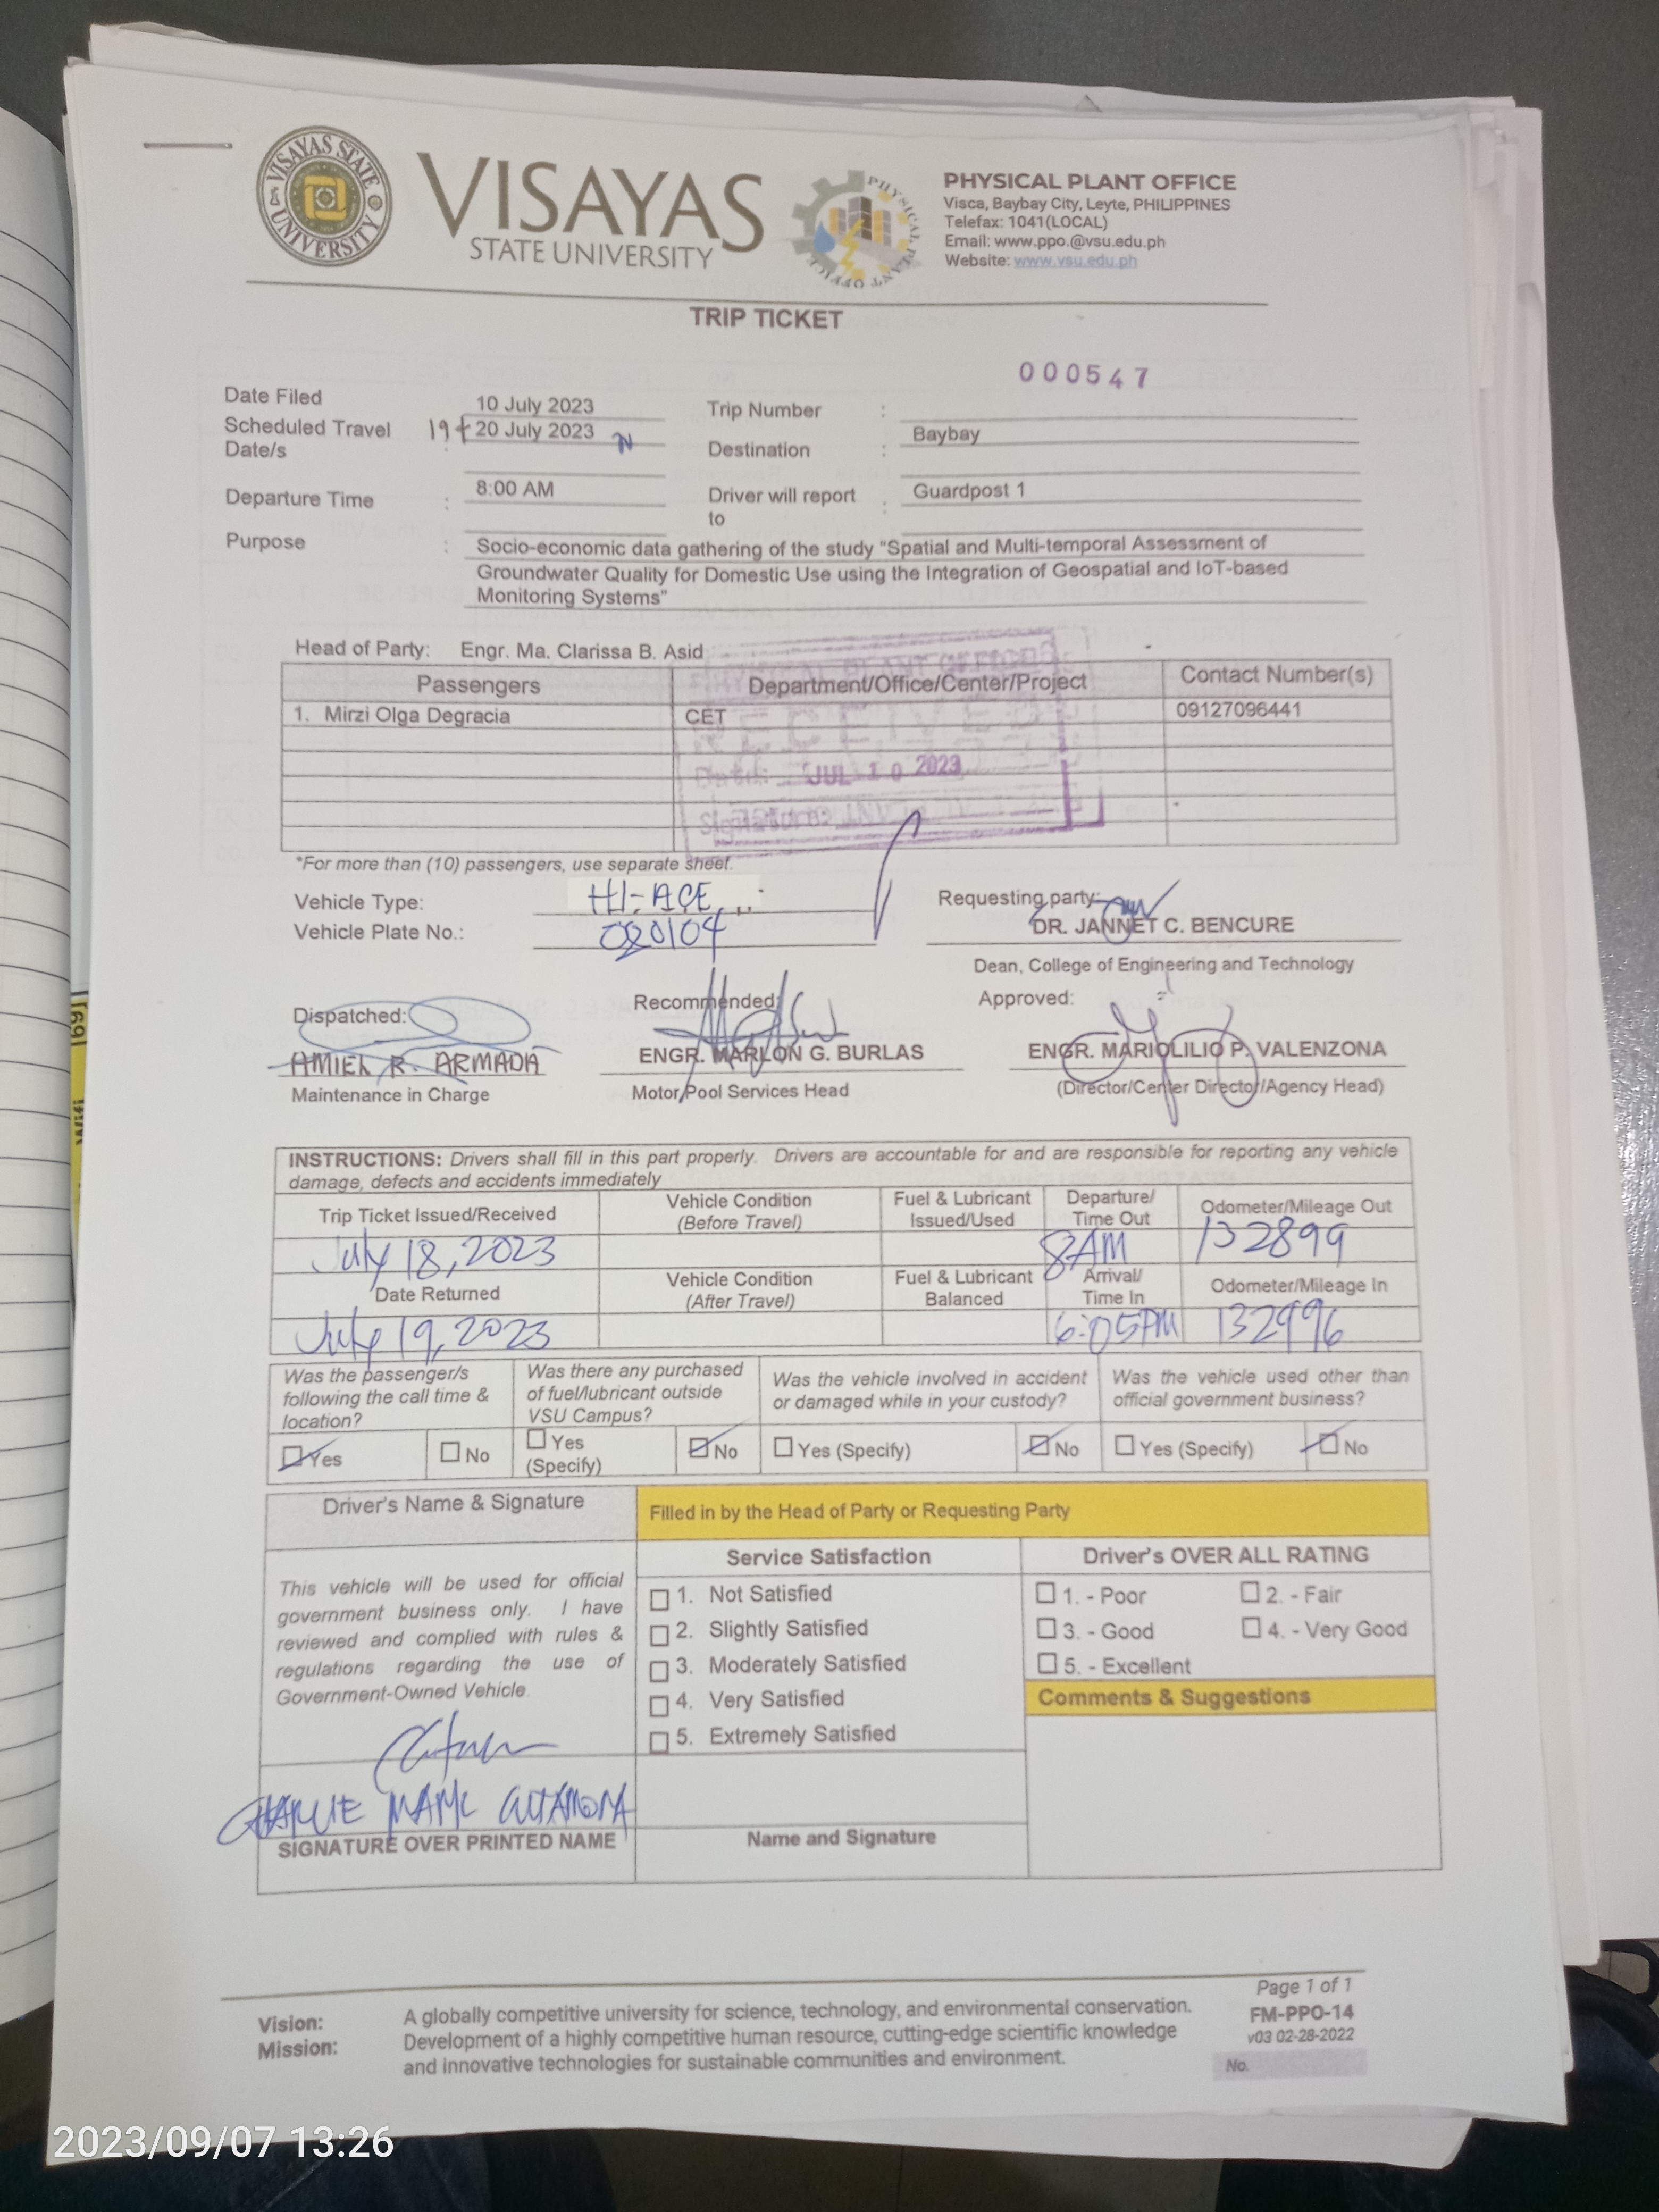 VISAYAS STATE UNIVERSITY
VISAYAS
STATE UNIVERSITY
PHYSICAL PLANT OFFICE
PHYSICAL PLANT OFFICE
Visca, Baybay City, Leyte, PHILIPPINES
Telefax: 1041(LOCAL)
Email: www.ppo.@vsu.edu.ph
Website: www.vsu.edu.ph
TRIP TICKET
000547
Date Filed 10 July 2023 Trip Number :
Scheduled Travel Date/s : 19 + 20 July 2023 Destination : Baybay
Departure Time : 8:00 AM Driver will report to : Guardpost 1
Purpose : Socio-economic data gathering of the study "Spatial and Multi-temporal Assessment of
Groundwater Quality for Domestic Use using the Integration of Geospatial and IoT-based
Monitoring Systems"
Head of Party: Engr. Ma. Clarissa B. Asid
Passengers Department/Office/Center/Project Contact Number(s)
1. Mirzi Olga Degracia CET 09127096441
RECEIVED
Date: JUL 10 2023
*For more than (10) passengers, use separate sheet.
Vehicle Type: HI-ACE Requesting party:
Vehicle Plate No.: DR. JANNET C. BENCURE
Dean, College of Engineering and Technology
Dispatched: Recommended: Approved:
AMIEL R. ARMADA ENGR. MARLON G. BURLAS ENGR. MARIOLILIO P. VALENZONA
Maintenance in Charge Motor Pool Services Head (Director/Center Director/Agency Head)
INSTRUCTIONS: Drivers shall fill in this part properly. Drivers are accountable for and are responsible for reporting any vehicle
damage, defects and accidents immediately
Trip Ticket Issued/Received Vehicle Condition (Before Travel) Fuel & Lubricant Issued/Used Departure/ Time Out Odometer/Mileage Out
July 18, 2023 8AM 132899
Date Returned Vehicle Condition (After Travel) Fuel & Lubricant Balanced Arrival/ Time In Odometer/Mileage In
July 19, 2023 6:05PM 132996
Was the passenger/s following the call time & location? Was there any purchased of fuel/lubricant outside VSU Campus? Was the vehicle involved in accident or damaged while in your custody? Was the vehicle used other than official government business?
Yes No Yes (Specify) No Yes (Specify) No Yes (Specify) No
Driver's Name & Signature Filled in by the Head of Party or Requesting Party
Service Satisfaction Driver's OVER ALL RATING
This vehicle will be used for official
government business only. I have
reviewed and complied with rules &
regulations regarding the use of
Government-Owned Vehicle.
1. Not Satisfied
2. Slightly Satisfied
3. Moderately Satisfied
4. Very Satisfied
5. Extremely Satisfied
1. - Poor 2. - Fair
3. - Good 4. - Very Good
5. - Excellent
Comments & Suggestions
SIGNATURE OVER PRINTED NAME Name and Signature
Page 1 of 1
Vision: A globally competitive university for science, technology, and environmental conservation. FM-PPO-14
Mission: Development of a highly competitive human resource, cutting-edge scientific knowledge v03 02-28-2022
and innovative technologies for sustainable communities and environment. No.
2023/09/07 13:26